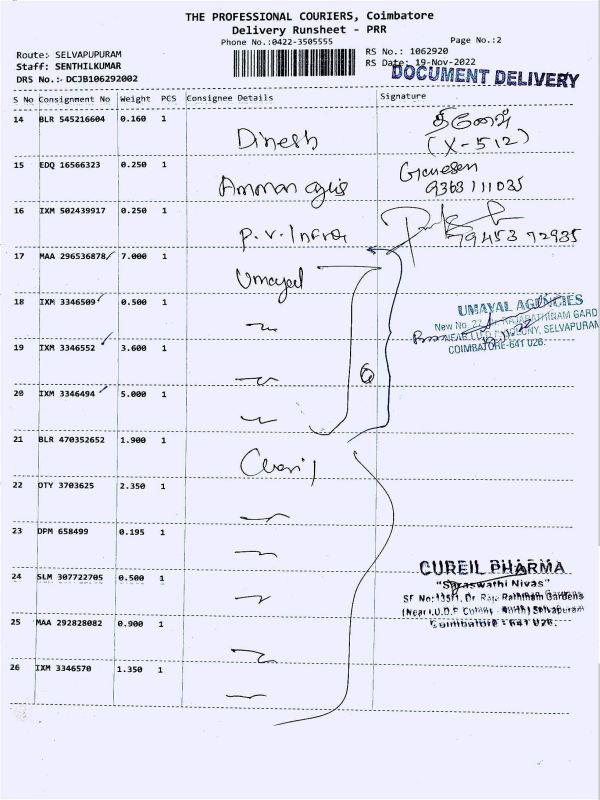 THE PROFESSIONAL COURIERS, Coimbatore
Delivery Runsheet - PRR
Phone No.:0422-3505555
Page No.:2
Route:- SELVAPUPURAM
RS No.: 1062920
Staff: SENTHILKUMAR
RS Date: 19-Nov-2022
DRS No.:- DCJB106292002
DOCUMENT DELIVERY
S No Consignment No Weight PCS Consignee Details Signature
14 BLR 545216604 0.160 1 Dinesh தினேஷ்
(X-512)
15 EDQ 16566323 0.250 1 Amman Ganesan
9363111035
16 IXM 502439917 0.250 1 P.V. Infra
79453 72935
17 MAA 296536878 7.000 1 Umayal
18 IXM 3346509 0.500 1
UMAYAL AGENCIES
New No. 27, RAJARATHINAM GARD
NEAR I.U.D.P COLONY, SELVAPURAM
COIMBATORE-641 026.
19 IXM 3346552 3.600 1
20 IXM 3346494 5.000 1
6
21 BLR 470352652 1.900 1
22 OTY 3703625 2.350 1
23 DPM 658499 0.195 1
24 SLM 307722705 0.500 1
CUREIL PHARMA
"Saraswathi Nivas"
SF No: Dr. Raja Rathinam Gardens
(Near I.U.D.P Colony - North) Selvapuram
Coimbatore - 641 026.
25 MAA 292828082 0.900 1
26 IXM 3346570 1.350 1